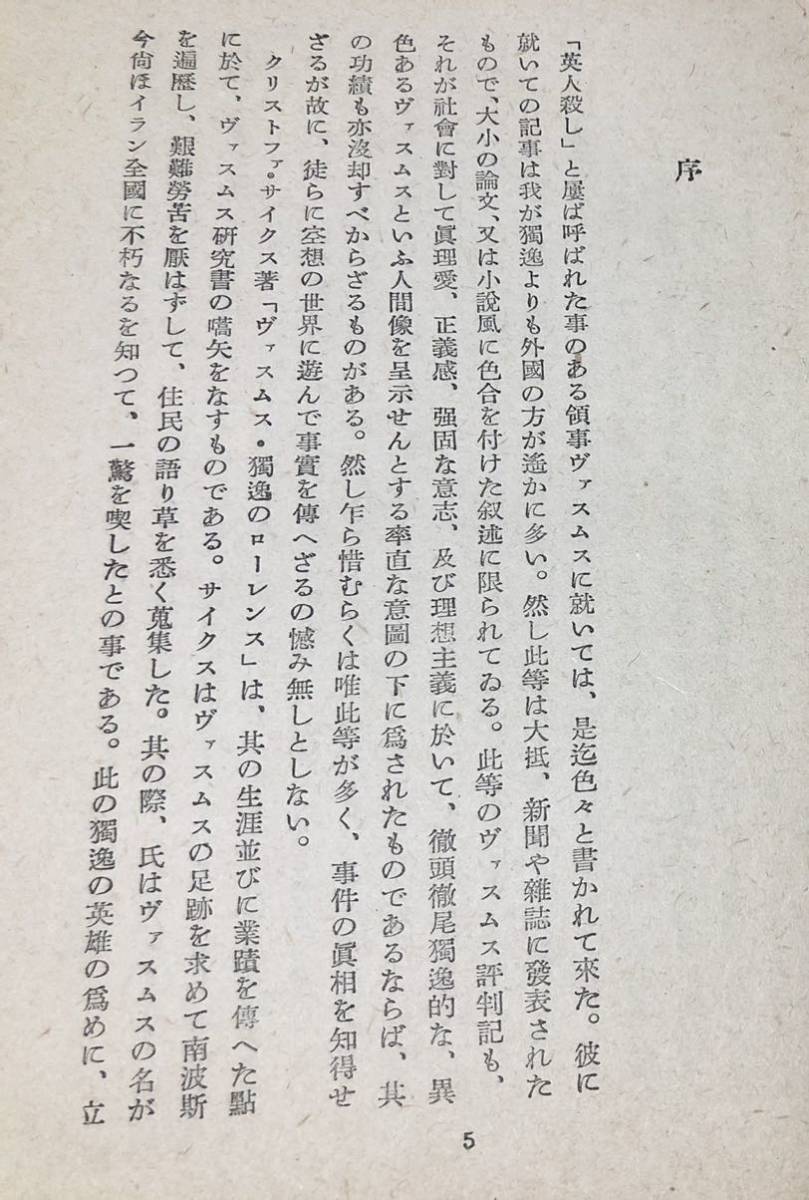 序
「英人殺し」と屢ば呼ばれた事のある領事ヴァスムスに就いては、是迄色々と書かれて來た。彼に
就いての記事は我が獨逸よりも外國の方が遙かに多い。然し此等は大抵、新聞や雜誌に發表された
もので、大小の論文、又は小說風に色合を付けた叙述に限られてゐる。此等のヴァスムス評判記も、
それが社會に對して眞理愛、正義感、强固な意志、及び理想主義に於いて、徹頭徹尾獨逸的な、異
色あるヴァスムスといふ人間像を呈示せんとする率直な意圖の下に爲されたものであるならば、其
の功績も亦沒却すべからざるものがある。然し乍ら惜むらくは唯此等が多く、事件の眞相を知得せ
ざるが故に、徒らに空想の世界に遊んで事實を傳へざるの憾み無しとしない。
クリストファ・サイクス著「ヴァスムス・獨逸のローレンス」は、其の生涯並びに業蹟を傳へた點
に於て、ヴァスムス研究書の嚆矢をなすものである。サイクスはヴァスムスの足跡を求めて南波斯
を遍歷し、艱難勞苦を厭はずして、住民の語り草を悉く蒐集した。其の際、氏はヴァスムスの名が
今尙ほイラン全國に不朽なるを知つて、一驚を喫したとの事である。此の獨逸の英雄の爲めに、立
5